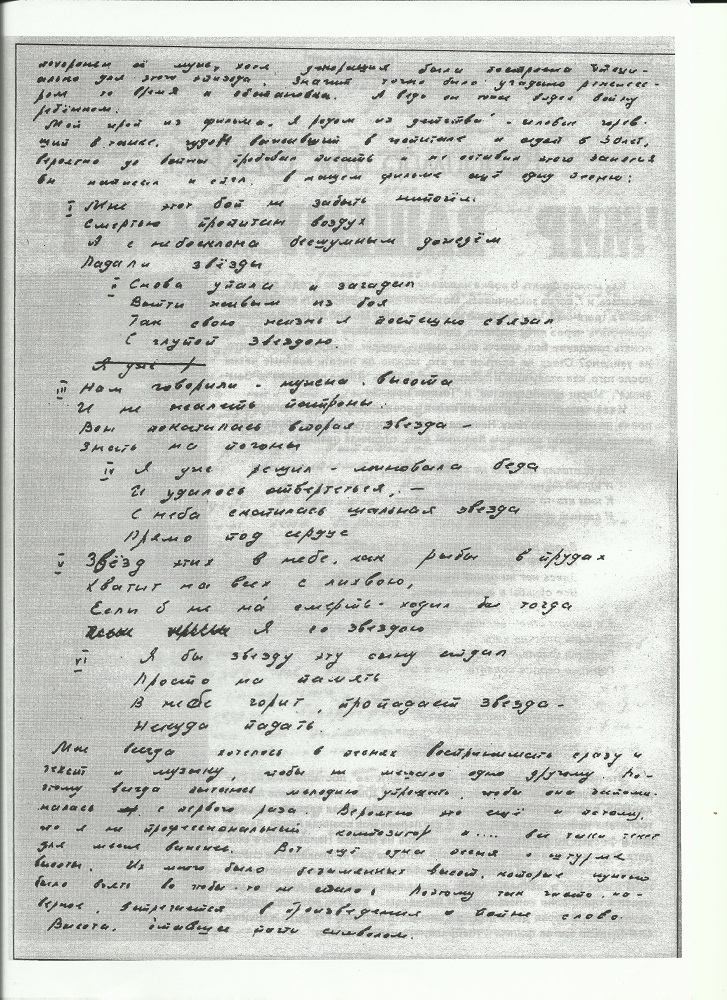 похоронен ей муж, хотя декорация была построена специ-
ально для этого эпизода. Значит точно было угадано режиссе-
ром то время и обстановка. А ведь он тоже видел войну
ребёнком.
Мой герой из фильма "Я родом из детства" - человек горев-
ший в танке, чудом выживший в госпитале и седой в 30 лет,
вероятно до войны пробовал писать и не оставил этого занятия
Он написал и спел в нашем фильме ещё одну песню:
I Мне этот бой не забыть нипочём.
Смертью пропитан воздух
А с небосклона бесшумным дождём
Падали звёзды
II Снова упала и загадал
Выйти живым из боя
Так свою жизнь я поспешно связал
С глупой звездою.
Я уже
III Нам говорили - нужна высота
И не жалеть патроны.
Вон покатилась вторая звезда -
Знать на погоны
IV Я уже решил - миновала беда
И удалось отвертеться, -
С неба скатилась шальная звезда
Прямо под сердце
V Звёзд этих в небе, как рыбы в прудах
Хватит на всех с лихвою,
Если б не на́ смерть - ходил бы тогда
Я со звездою
VI Я бы звезду эту сыну отдал
Просто на память
В небе горит, пропадает звезда -
Некуда падать.
Мне всегда хотелось в песнях воспринимать сразу и
текст и музыку, чтобы не мешало одно другому. По-
этому всегда пытаюсь мелодию упрощать, чтобы она запоми-
налась с первого раза. Вероятно это ещё и потому,
что я не профессиональный композитор и .... всё таки текст
для меня важнее. Вот ещё одна песня о штурме
высоты. Их много было безымянных высот, которые нужно
было взять во чтобы то не стало! Поэтому так часто, на-
верное, встречается в произведения о войне слово
Высота, ставшее почти символом.